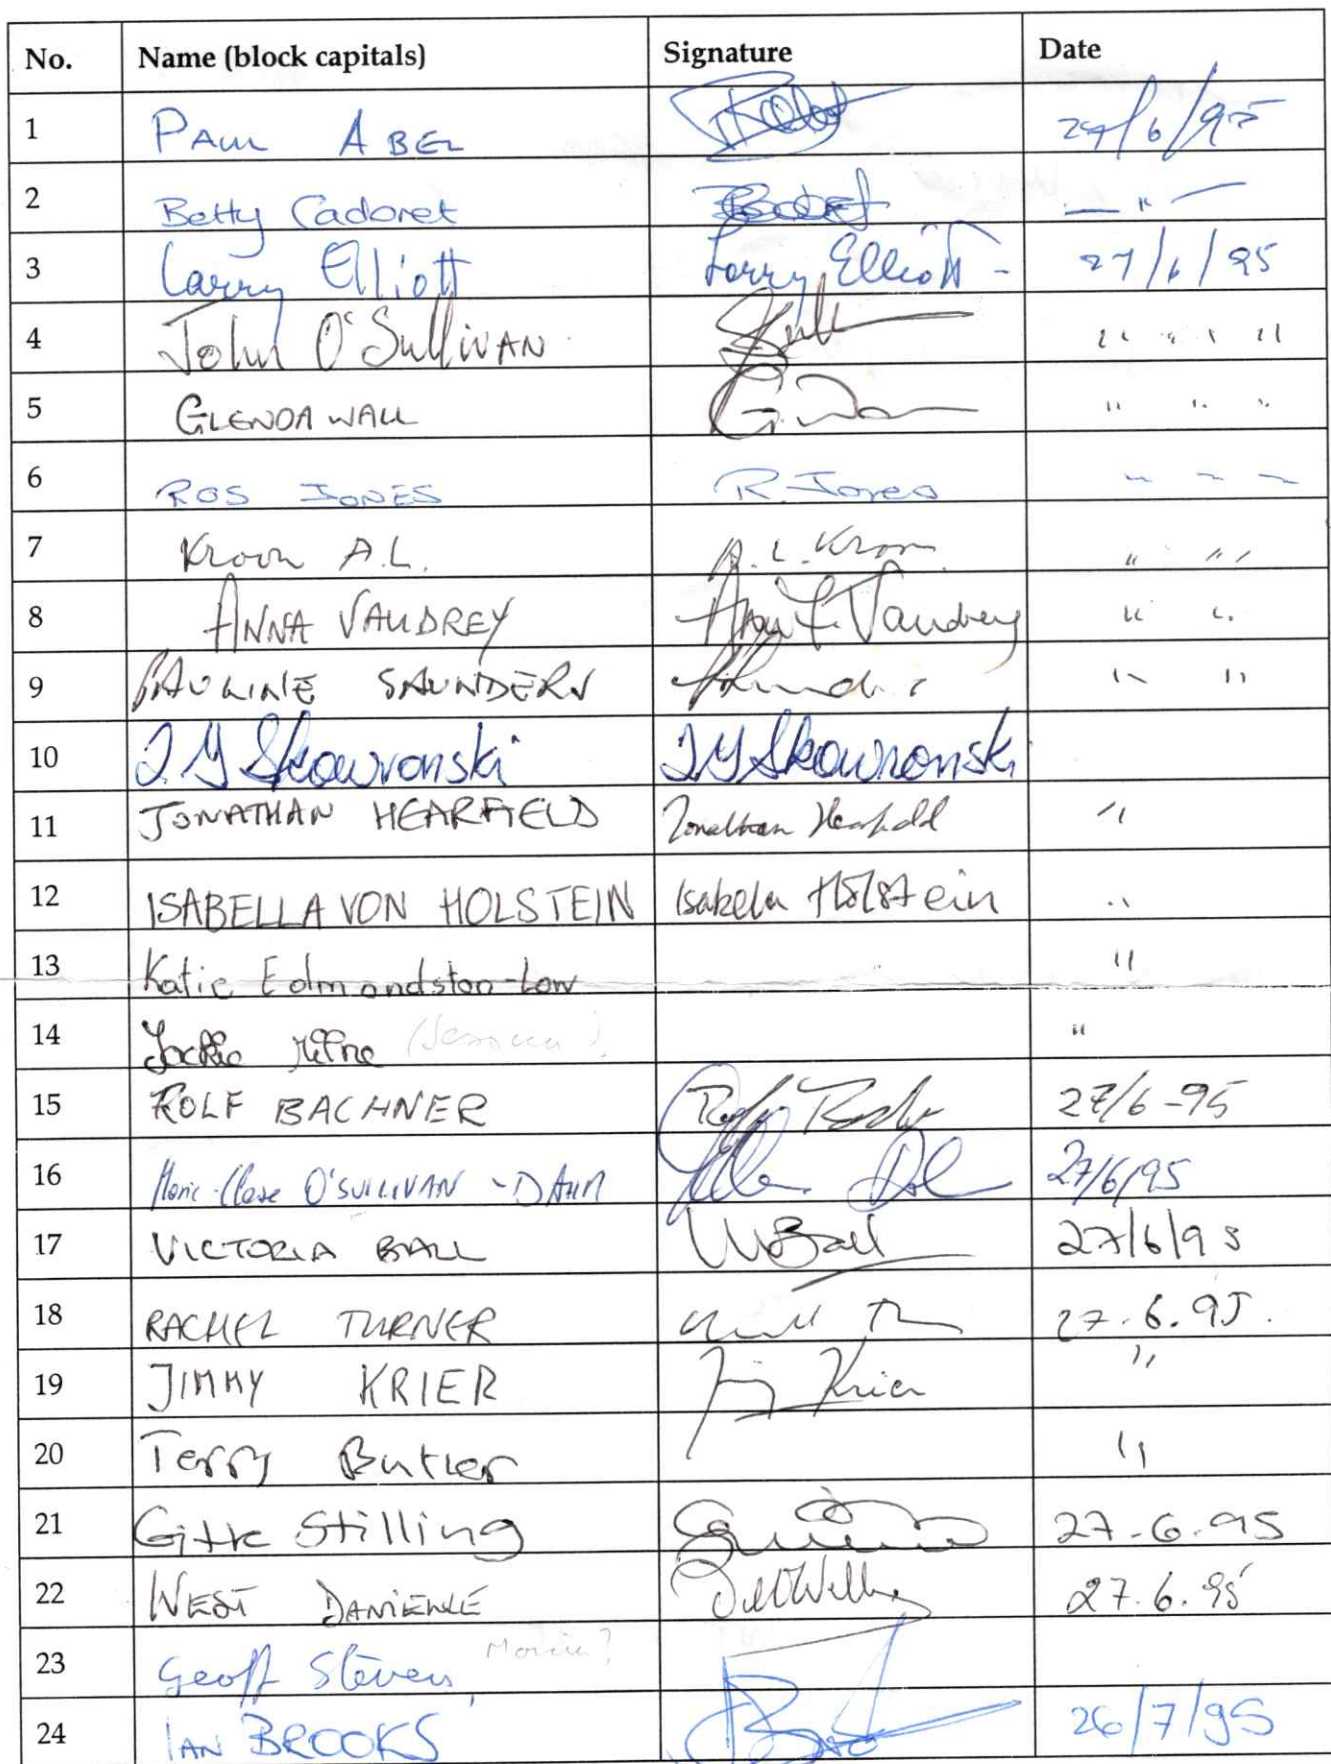 No. Name (block capitals) Signature Date
1 PAUL ABEL 27/6/95
2 Betty Cadoret — " —
3 Larry Elliott Larry Elliott - 27/6/95
4 John O'SullivAN " " " "
5 GLENDA WALL G. Wall " " "
6 ROS JONES R. Jones " " "
7 Kroon A.L. A.L. Kroon " " "
8 ANNA VAUDREY Vaudrey " "
9 PAULINE SAUNDERS " "
10 J.Y Skowronski J Y Skowronski
11 JONATHAN HEARFIELD Jonathan Hearfield "
12 ISABELLA VON HOLSTEIN Isabella Holstein "
13 Katie Edmondston-Low "
14 Jackie Milne (Jessica?) "
15 ROLF BACHNER 27/6-95
16 O'SULLIVAN - DAHM 27/6/95
17 VICTORIA BALL VBall 27/6/95
18 RACHEL TURNER 27.6.95.
19 JIMMY KRIER Krier "
20 Terry Butler "
21 Gitte Stilling 27.6.95
22 WEST DANIELLE 27.6.95
23 Geoff Stevens
24 IAN BROOKS 26/7/95